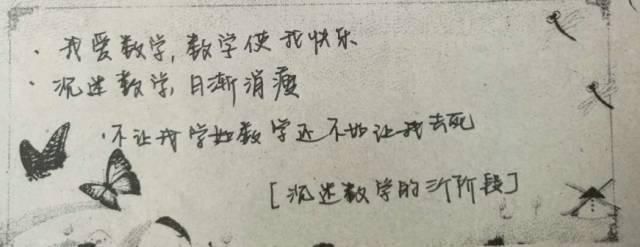 · 我爱数学，数学使我快乐
· 沉迷数学，日渐消瘦
· 不让我学数学还不如让我去死
[沉迷数学的三阶段]